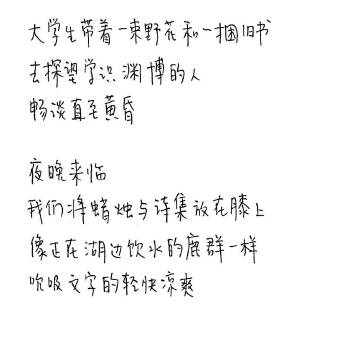 大学生带着一束野花和一捆旧书
去探望学识渊博的人
畅谈直至黄昏
夜晚来临
我们将蜡烛与诗集放在膝上
像正在湖边饮水的鹿群一样
吹吸文字的轻快凉爽